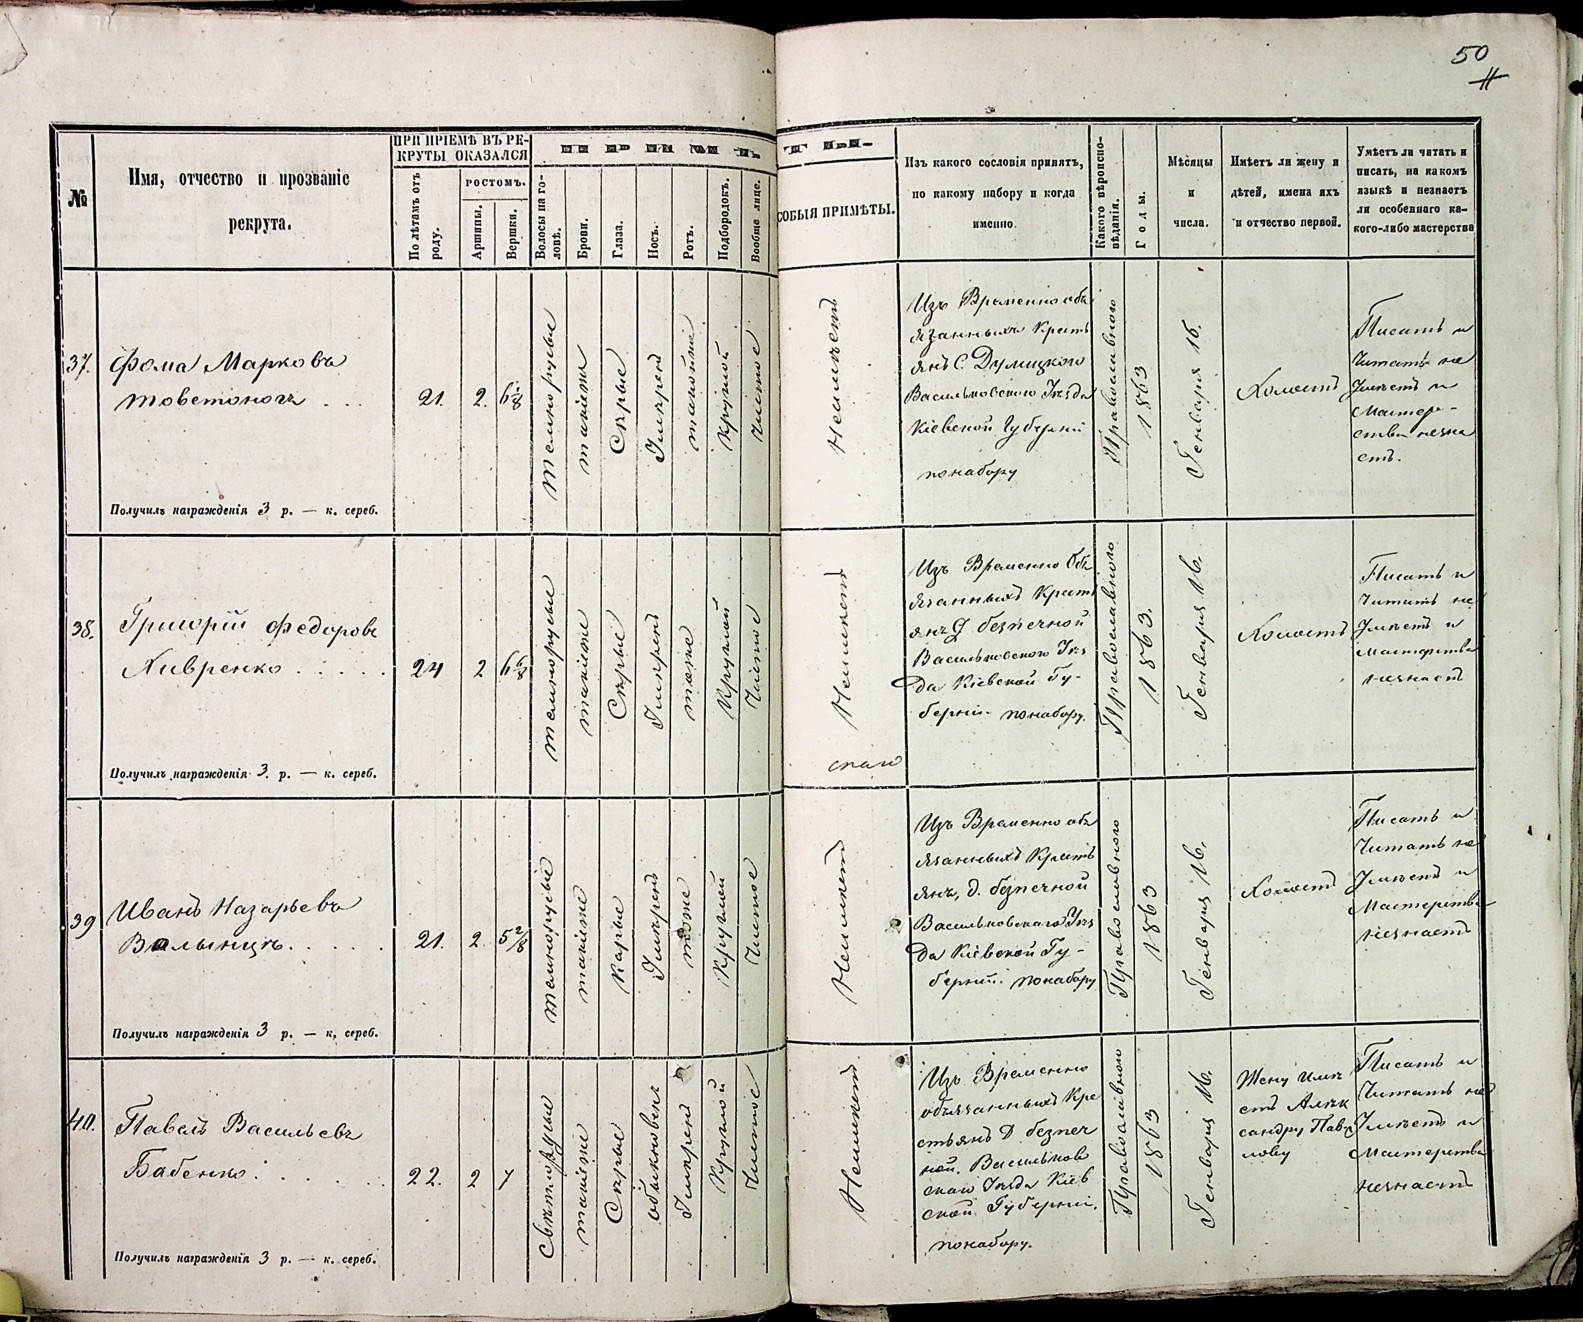 50
№
Имя, отчество и прозваніе
рекрута.
ПРИ ПРІЕМѢ ВЪ РЕ-
КРУТЫ ОКАЗАЛСЯ
По лѣтамъ отъ
роду.
РОСТОМЪ.
Аршины.
Вершки.
Волосы на го-
ловѣ.
Брови.
Глаза.
Носъ.
Ротъ.
Подбородокъ.
Вообще лице.
СОБЫЯ ПРИМѢТЫ.
Изъ какого сословія принятъ,
по какому набору и когда
именно.
Какого вѣроиспо-
вѣданія.
Годы.
Мѣсяцы
и
числа.
Имѣетъ ли жену и
дѣтей, имена ихъ
и отчество первой.
Умѣетъ ли читать и
писать, на какомъ
языкѣ и незнаетъ
ли особеннаго ка-
кого-либо мастерства
37.
Фома Марковъ
Товстоногъ . .
Получилъ награжденія 3 р. — к. сереб.
21.
2.
6 5/8
темнорусые
такіеже
Сѣрые
Умѣрен
таковже
Круглой
Чистое
Неимѣетъ
Изъ Временно обя
язанныхъ Крест
янъ С. Дулицкаго
Васильковскаго Уѣзда
Кіевской Губерніи
понабору
Православнаго
1863
Генваря 16.
Холостъ
Писать и
Читать не
Умѣетъ и
Мастер-
ства незна
етъ.
38.
Григорій Федоровъ
Хивренко . . . . .
Получилъ награжденія 3. р. — к. сереб.
24
2
темнорусые
такіеже
Сѣрые
Умѣренъ
тоже
Круглой
Чистое
Неимѣетъ
скаго
Изъ Временно Обя
язанныхъ Крест
янъ Д безпечной
Васильковского Уѣз
да Кіевской Гу-
берніи понабору.
Православнаго
1863.
Генваря 16.
Холостъ
Писать и
Читать не
Умѣетъ и
Мастерства
незнаетъ
39
Иванъ Назарьевъ
Волынецъ . . . . .
Получилъ награжденія 3 р. — к. сереб.
21.
2
5 2/8
темнорусые
такіеже
Карые
Умѣренъ
тоже
Круглой
Чистое
Неимѣетъ
Изъ Временно обя
язанныхъ Крест
янъ, д. безпечной
Васильковскаго Уѣз
да Кіевской Гу-
берніи. понабору
Православнаго
1863
Генваря 16.
Холостъ
Писать и
Читать не
Умѣетъ и
Мастерства
незнаетъ
40.
Павелъ Васильевъ
Бабенко . . . . .
Получилъ награжденія 3 р. — к. сереб.
22.
2
7
Свѣтлорусые
такіеже
Сѣрые
обыкновенъ
Умѣрен
Круглой
Чистое
Неимѣетъ.
Изъ Временно
обязанныхъ Кре
стьянъ Д безпеч
ной. Васильков
скаго Уѣзда Кіев
ской Губерніи.
понабору.
Православнаго
1863
Генваря 16.
Жену имѣ
етъ Алек
сандру Пав
лову
Писать и
Читать не
Умѣетъ и
Мастерства
незнаетъ